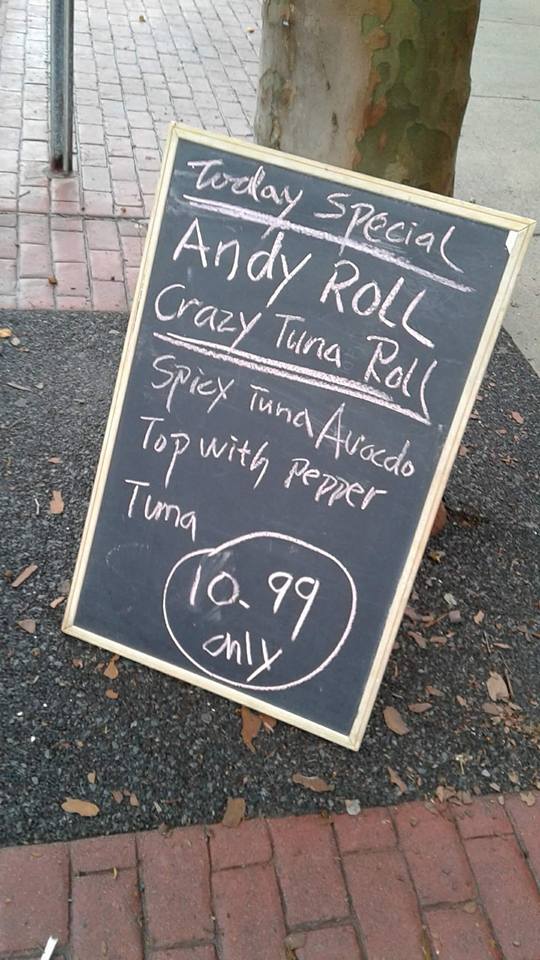 Today Special
Andy ROLL
Crazy Tuna Roll
Spicy Tuna Avocdo
Top with pepper
Tuna
10.99
only